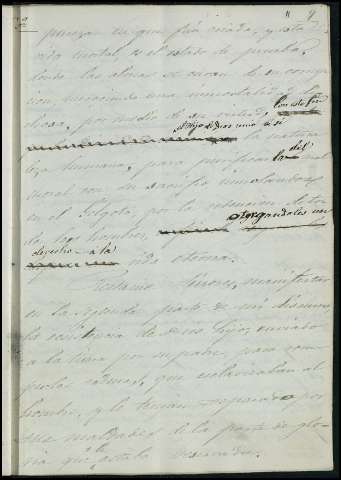 pureza en que fué criada, y esta
vida mortal, es el estado de prueba,
donde las almas se curan de su corrup
cion, mereciendo una inmortalidad
por medio de su con este fin
el Hijo de Dios unió á sí la natura
leza humana, para purificarla del mal
moral con su sacrificio inmolandose
en el Gólgota, por la redencion de to
dos los hombres, otorgandoles un
derecho á la vida eterna.
Réstame Señores, manifestar
en la segunda parte de mi discurso
la existencia de Dios hijo, enviado
á la tierra por su padre, para rom
per las cadenas, que esclavizaban al
hombre, y le tenian separado por
sus maldades de la patria de glo
ria que le estaba